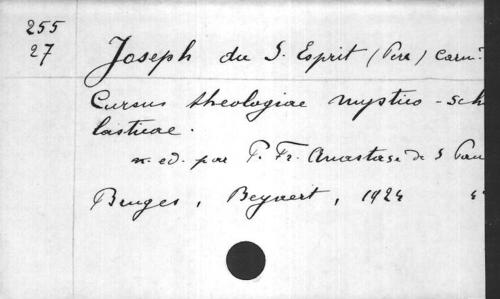 255
27
Joseph du S. Esprit (Père) Carm.
Cursus theologiae mystico-sch
lasticae.
n. ed. par P. Fr. Anastase de S Pau
Bruges, Beyaert, 1924 4°